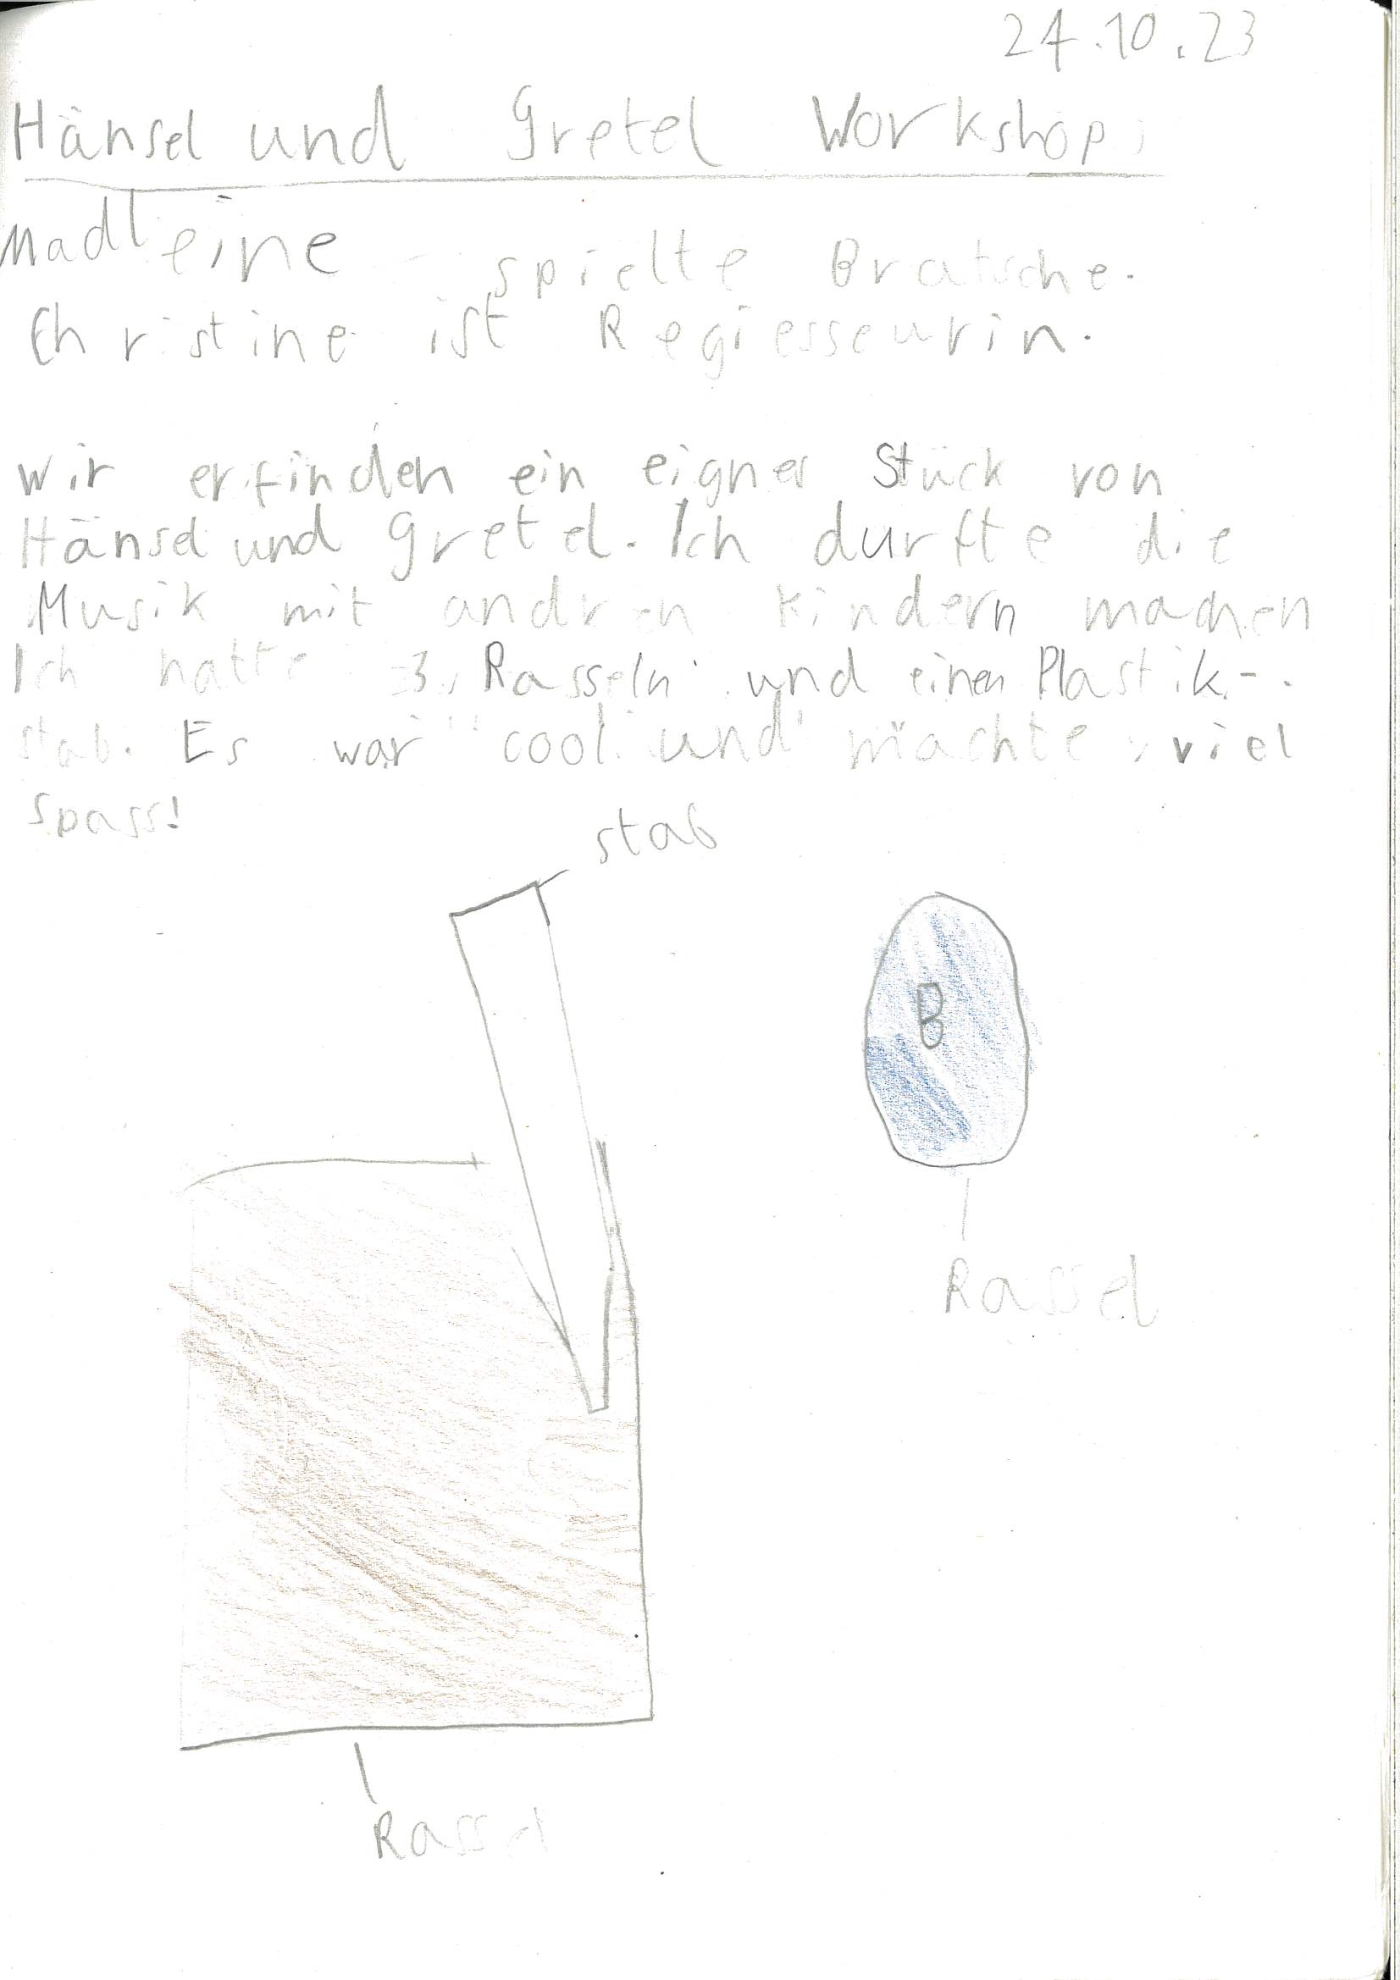 24.10.23
Hänsel und Gretel Workshop:
Madleine spielte Bratsche.
Christine ist Regiesseurin.
Wir erfinden ein eignes Stück von
Hänsel und Gretel. Ich durfte die
Musik mit andren Kindern machen
Ich hatte 3 Rasseln und einen Plastik-
stab. Es war cool und machte viel
spass!
stab
B
Rassel
Rassel